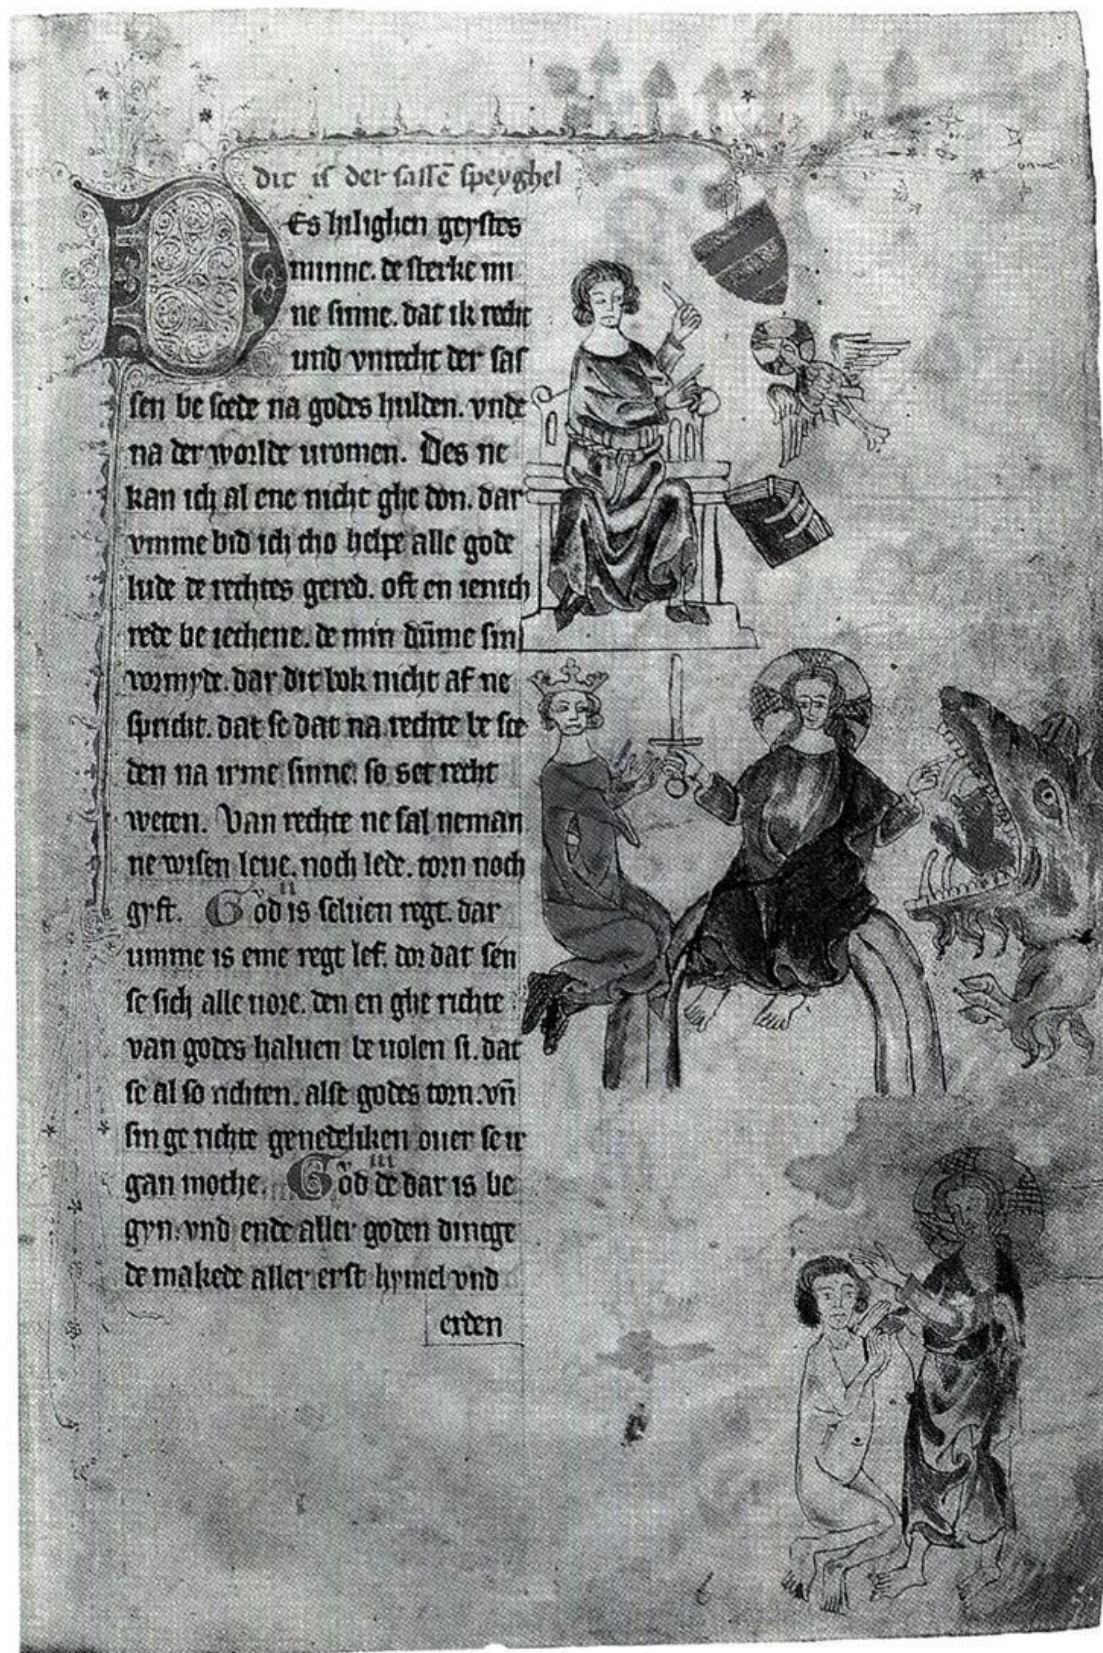 dit is der sassē speyghel
Des hilighen geystes
minne. de sterke mi
ne sinne. dat ik recht
und vnrecht der sas
sen be scede na godes hulden. vnde
na der worlde uromen. Des ne
kan ich al ene nicht ghe don. dar
vmme bid ich tho helpe alle gode
lude de rechtes gered. oft en ienich
rede be iechene. de min dūme sin
vormyde. dar dit bok nicht af ne
spricht. dat se dat na rechte be sce
den na irme sinne. so set recht
weten. Van rechte ne sal neman
ne wisen leue. noch lede. torn noch
gyft. God is seluen regt. dar
umme is eme regt lef. dor dat sen
se sich alle uore. den en ghe richte
van godes haluen be uolen si. dat
se al so richten. alse godes torn. vn̄
sin ge richte genedeliken ouer se ir
gan mothe. God de dar is be
gyn. vnd ende aller goden dincge
de makede aller erst hymel vnd
erden